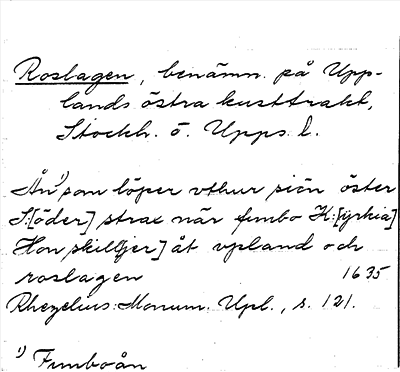 Roslagen, benämn. på Upp-
lands östra kusttrakt,
Stockh. o. Upps. l.
Ån¹) som löper vthur siön öster
S:[öder] strax när funbo K:[yrkia]
Hon skill[jer] åt vpland och
roslagen 1635
Rhezelius: Monum. Upl., s. 121.
¹) Funboån